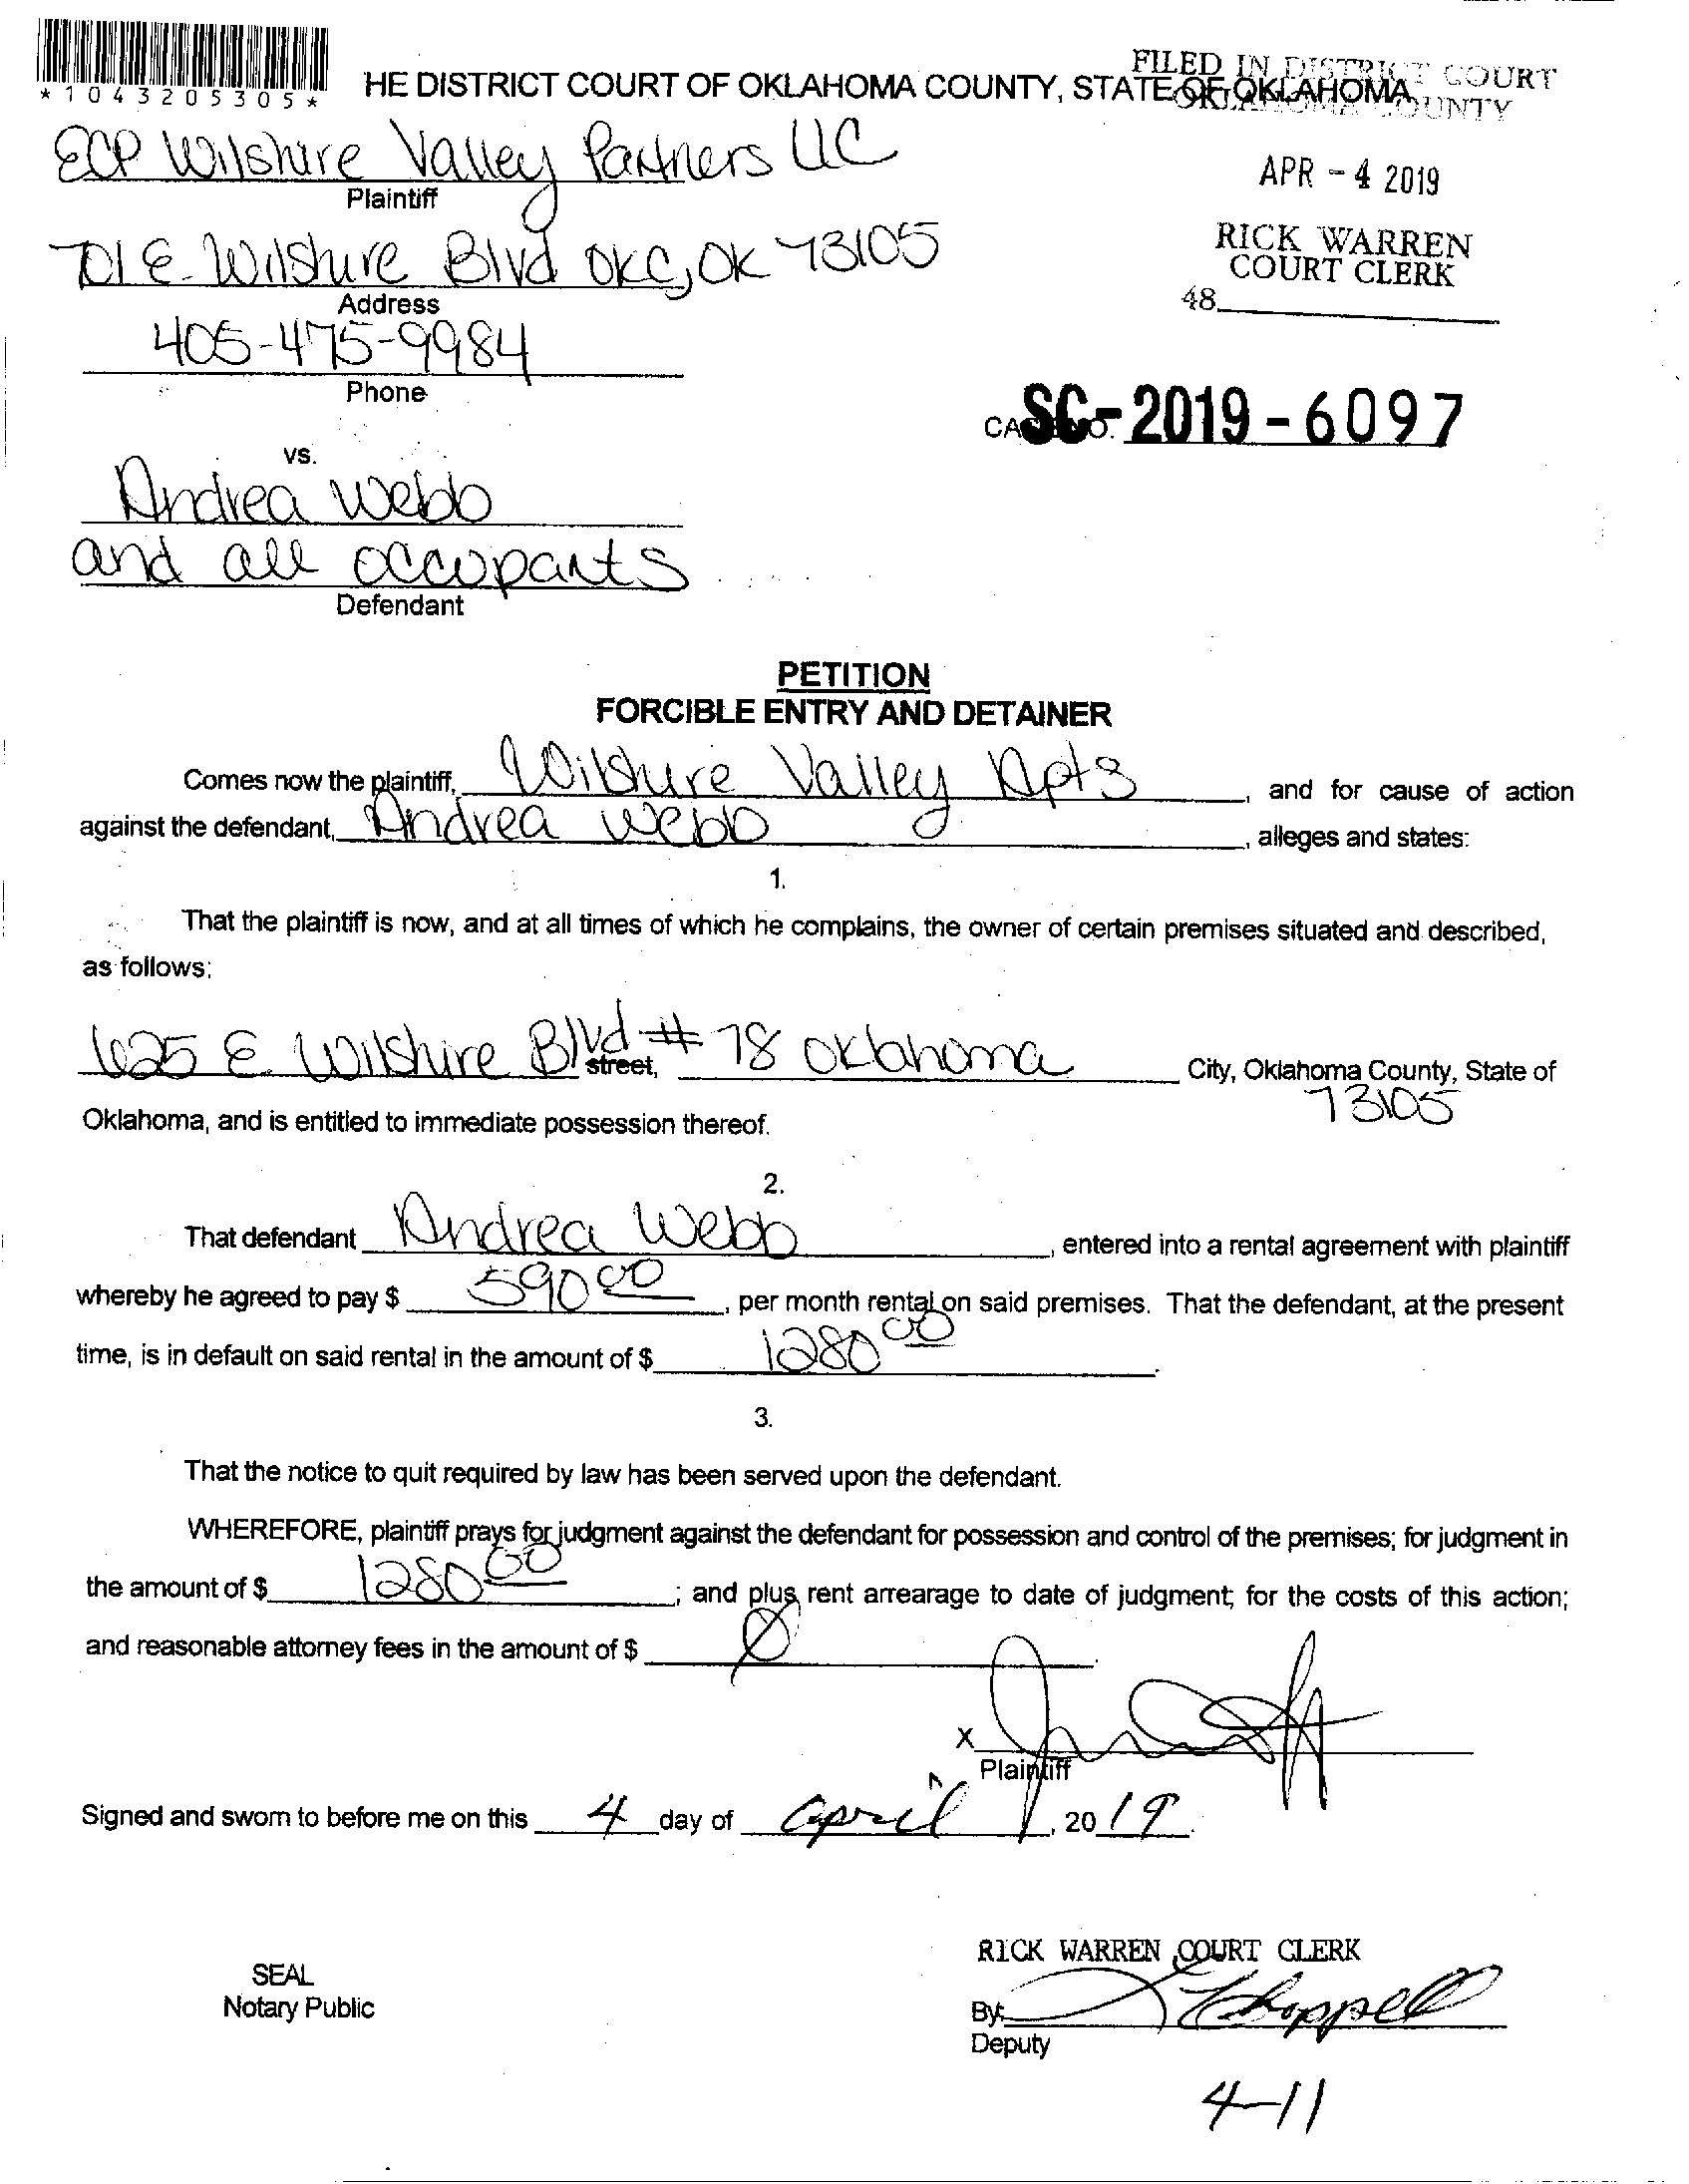 *1043205305*
HE DISTRICT COURT OF OKLAHOMA COUNTY, STATE OF OKLAHOMA
FILED IN DISTRICT COURT
OKLAHOMA COUNTY
ECP Wilshire Valley Partners LLC
Plaintiff
APR - 4 2019
701 E. Wilshire Blvd OKC, OK 73105
Address
RICK WARREN
COURT CLERK
48
405-475-9984
Phone
SC-2019-6097
vs.
Andrea Webb
and all occupants
Defendant
PETITION
FORCIBLE ENTRY AND DETAINER
Comes now the plaintiff, Wilshire Valley Apts, and for cause of action
against the defendant, Andrea Webb, alleges and states:
1.
That the plaintiff is now, and at all times of which he complains, the owner of certain premises situated and described,
as follows:
625 E. Wilshire Blvd street, # 78 Oklahoma City, Oklahoma County, State of
73105
Oklahoma, and is entitled to immediate possession thereof.
2.
That defendant Andrea Webb, entered into a rental agreement with plaintiff
whereby he agreed to pay $ 590 00, per month rental on said premises. That the defendant, at the present
time, is in default on said rental in the amount of $ 1280 00.
3.
That the notice to quit required by law has been served upon the defendant.
WHEREFORE, plaintiff prays for judgment against the defendant for possession and control of the premises; for judgment in
the amount of $ 1280 00; and plus rent arrearage to date of judgment; for the costs of this action;
and reasonable attorney fees in the amount of $ Ø.
X
Plaintiff
Signed and sworn to before me on this 4 day of April, 2019.
RICK WARREN COURT CLERK
SEAL
Notary Public
By:
Deputy
4-11